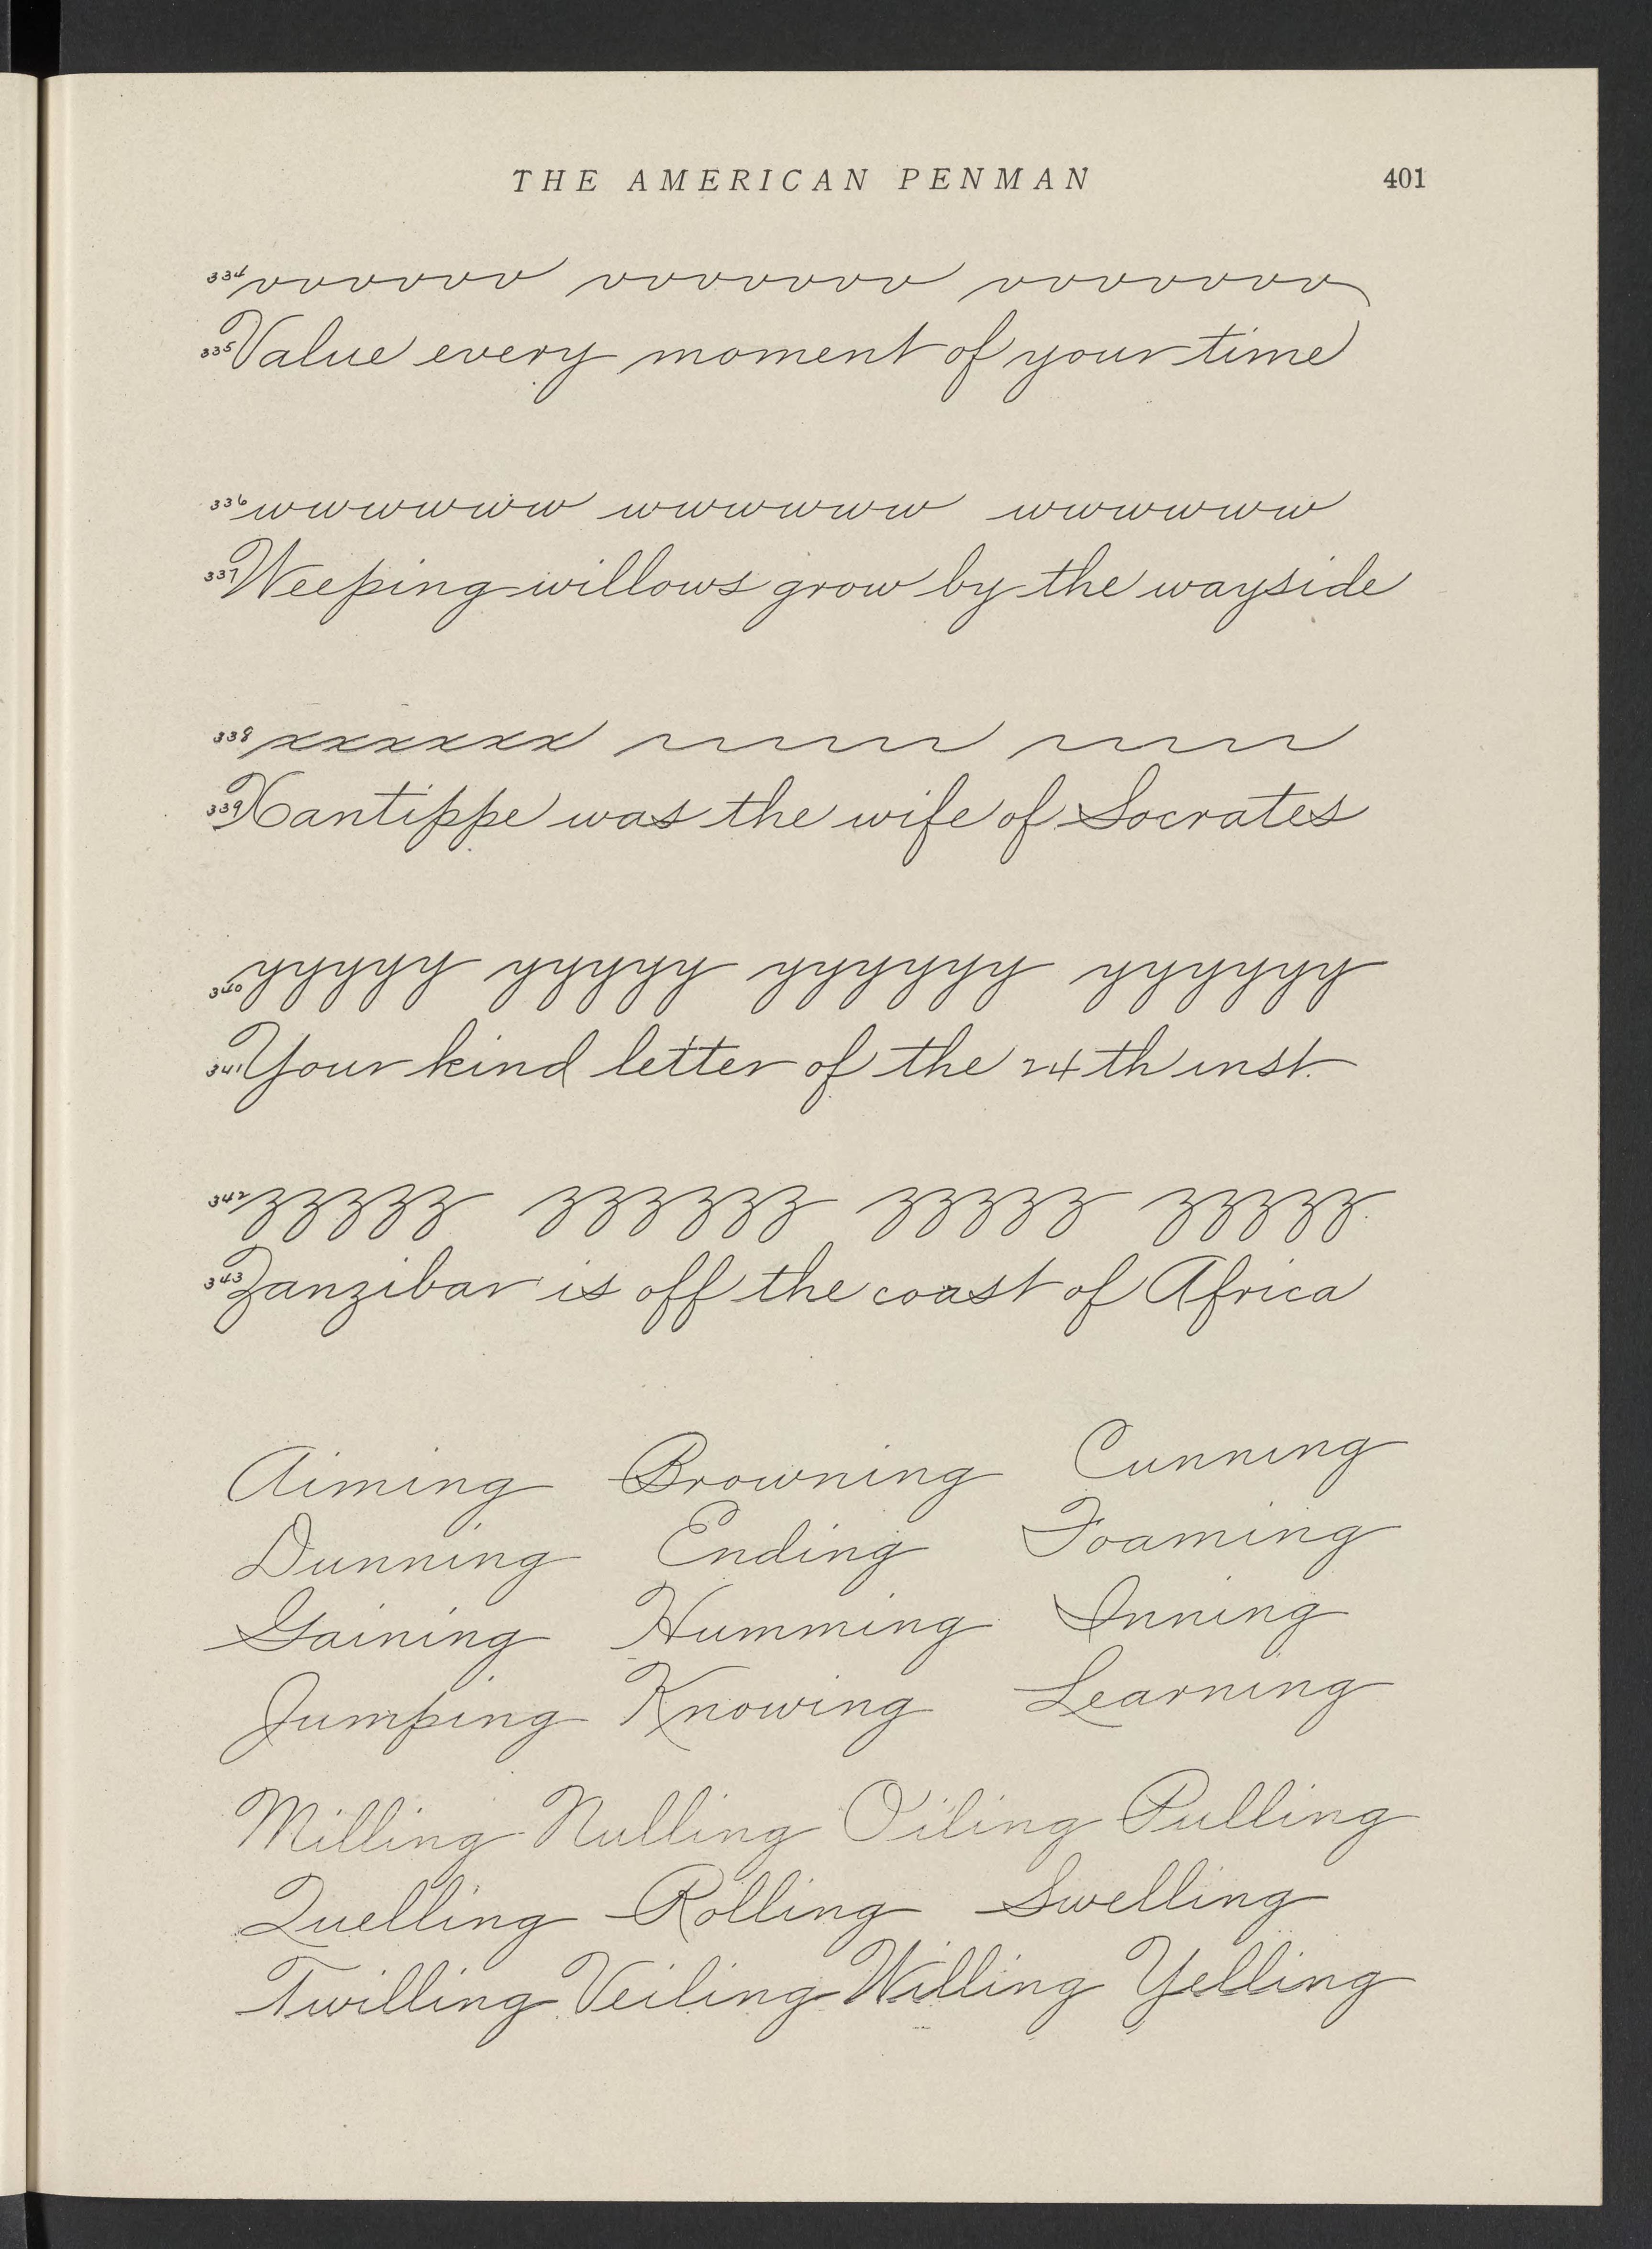 THE AMERICAN PENMAN 401
334 vvvvvv vvvvvvv vvvvvvv
335 Value every moment of your time
336 wwwwww wwwwww wwwwww
337 Weeping willows grow by the wayside
338 xxxxxx
339 Xantippe was the wife of Socrates
340 yyyyy yyyyy yyyyyy yyyyyy
341 Your kind letter of the 24th inst.
342 zzzzz zzzzzz zzzzz zzzzz
343 Zanzibar is off the coast of Africa
Aiming Browning Cunning
Dunning Ending Foaming
Gaining Humming Inning
Jumping Knowing Learning
Milling Nulling Oiling Pulling
Quelling Rolling Swelling
Twilling Veiling Willing Yelling